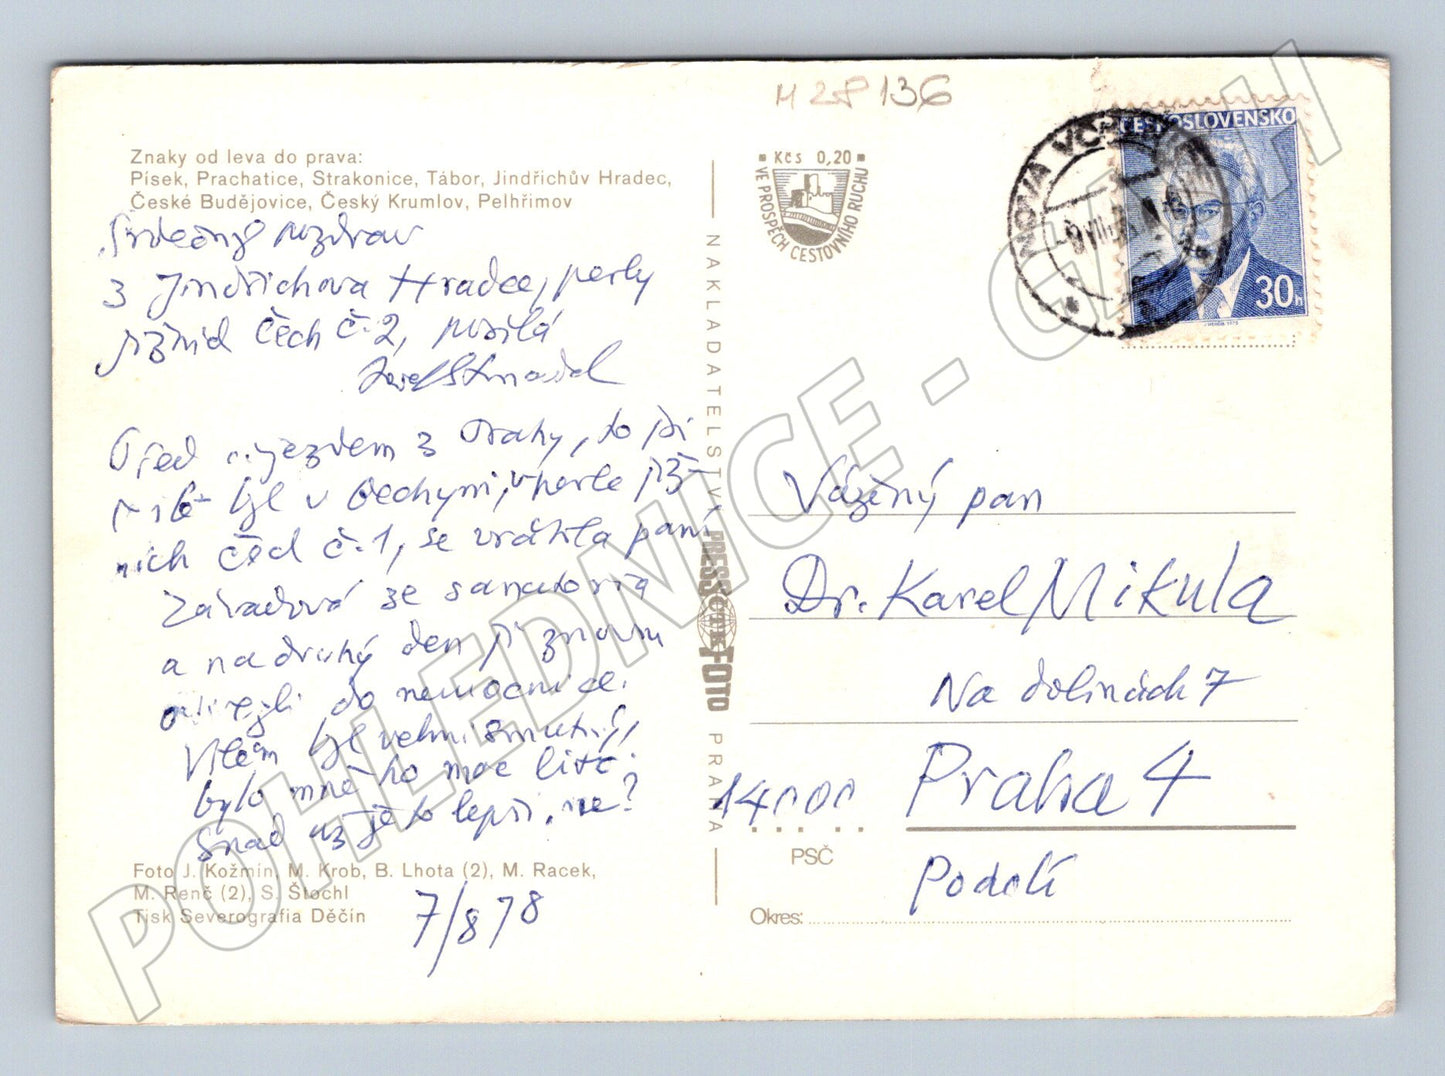 M 28 136
Znaky od leva do prava:
Písek, Prachatice, Strakonice, Tábor, Jindřichův Hradec,
České Budějovice, Český Krumlov, Pelhřimov
Srdečný pozdrav
z Jindřichova Hradce, perly
jižních Čech č. 2, posílá
Před výjezdem z Prahy, to při
byl v Bechyni, v perle již-
ních Čech č. 1, se vrátila paní
ze sanatoria
a na druhý den ji znovu
odvezli do nemocnice.
byl velmi smutný,
bylo mně ho moc líto.
Snad už je to lepší, ne?
Foto J. Kožmín, M. Krob, B. Lhota (2), M. Racek,
M. Renč (2), S. Štochl
Tisk Severografia Děčín
7/8 78
NAKLADATELSTVÍ PRESSFOTO PRAHA
ČTK
Kčs 0,20
VE PROSPĚCH CESTOVNÍHO RUCHU
ČESKOSLOVENSKO
30h
NOVÁ
Vážený pan
Dr. Karel Mikula
Na dolinách 7
14000 Praha 4
PSČ
Podolí
Okres:
POHLEDNICE - GAMAH